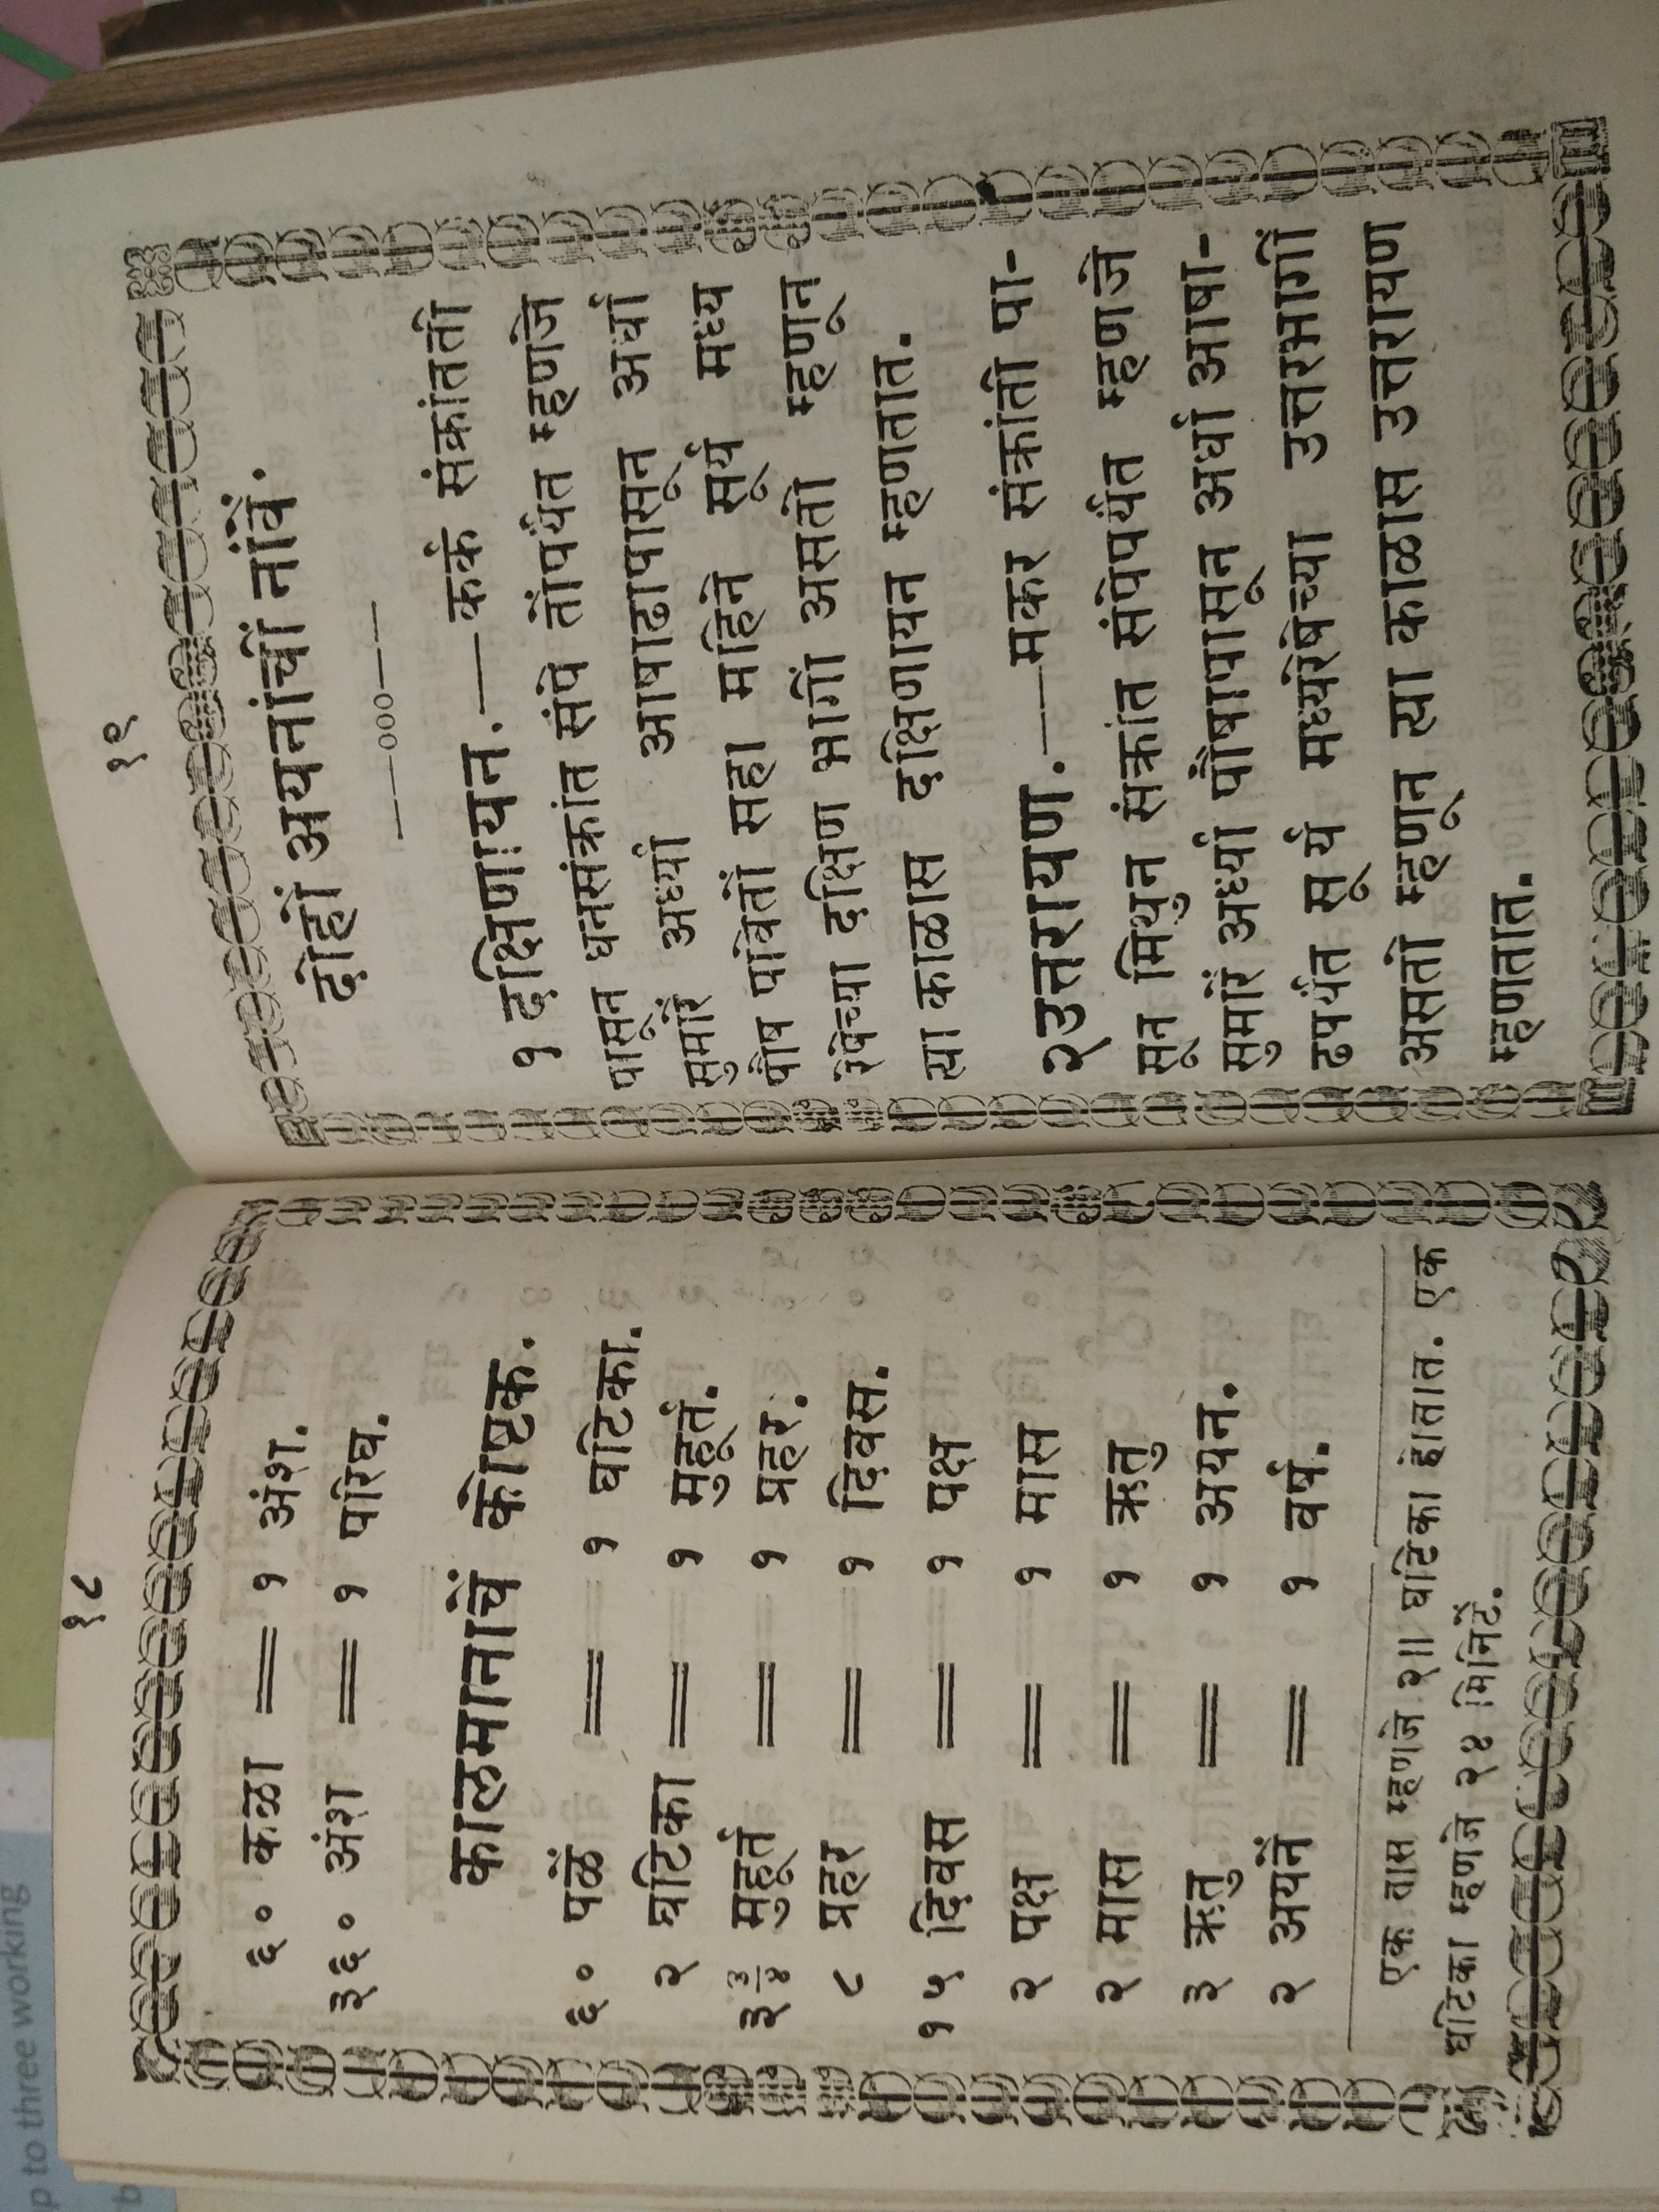 १८
६० कळा = १ अंश.
३६० अंश = १ परिघ.
कालमानाचें कोष्टक.
६० पळें = १ घटिका.
२ घटिका = १ मुहूर्त.
३ ३/४ मुहूर्त = १ प्रहर.
८ प्रहर = १ दिवस.
१५ दिवस = १ पक्ष
२ पक्ष = १ मास
२ मास = १ ऋतु
३ ऋतु = १ अयन.
२ अयनें = १ वर्ष.
एक तास म्हणजे २॥ घटिका होतात. एक
घटिका म्हणजे २४ मिनिटें.
१९
दोहों अयनांचीं नांवें.
——०००——
१ दक्षिणायन.—कर्क संक्रांती
पासून धनसंक्रांत संपे तोंपर्यंत म्हणजे
सुमारें अर्ध्या आषाढापासून अर्धा
पौष पावेतों सहा महिने सूर्य मध्य
रेषेच्या दक्षिण भागीं असतो म्हणून
त्या काळास दक्षिणायन म्हणतात.
२उत्तरायण.—मकर संक्रांती पा-
सून मिथुन संक्रांत संपेपर्यंत म्हणजे
सुमारें अर्ध्या पौषापासून अर्धा आषा-
ढपर्यंत सूर्य मध्यरेषेच्या उत्तरभागीं
असतो म्हणून त्या काळास उत्तरायण
म्हणतात.
p to three working
b